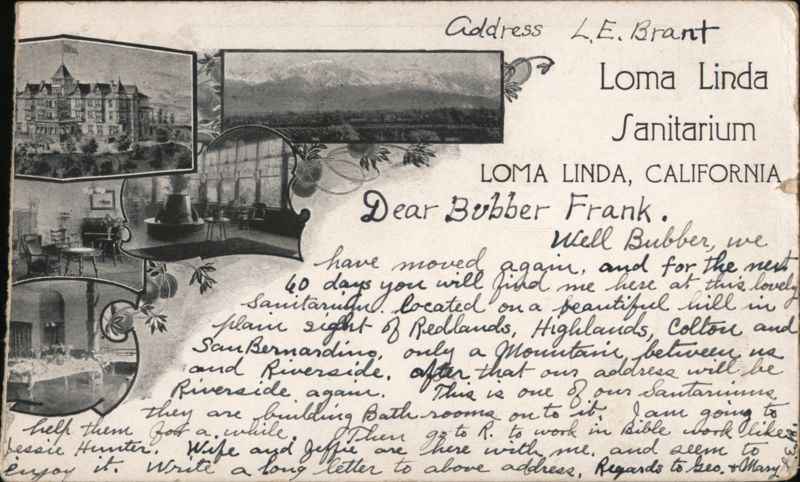 Address L.E. Brant
Loma Linda
Sanitarium
LOMA LINDA, CALIFORNIA
Dear Bubber Frank.
Well Bubber, we
have moved again, and for the next
60 days you will find me here at this lovely
Sanitarium. located on a beautiful hill in
plain sight of Redlands, Highlands, Colton and
San Bernardino, only a Mountain, between us
and Riverside. after that our address will be
Riverside again. This is one of our Santariums
they are building Bath-rooms on to it. I am going to
help them for a while. Then go to R. to work in Bible work like
Jessie Hunter. Wife and Jeffie are here with me, and seem to
enjoy it. Write a long letter to above address. Regards to Geo. & Mary
L.E.B.